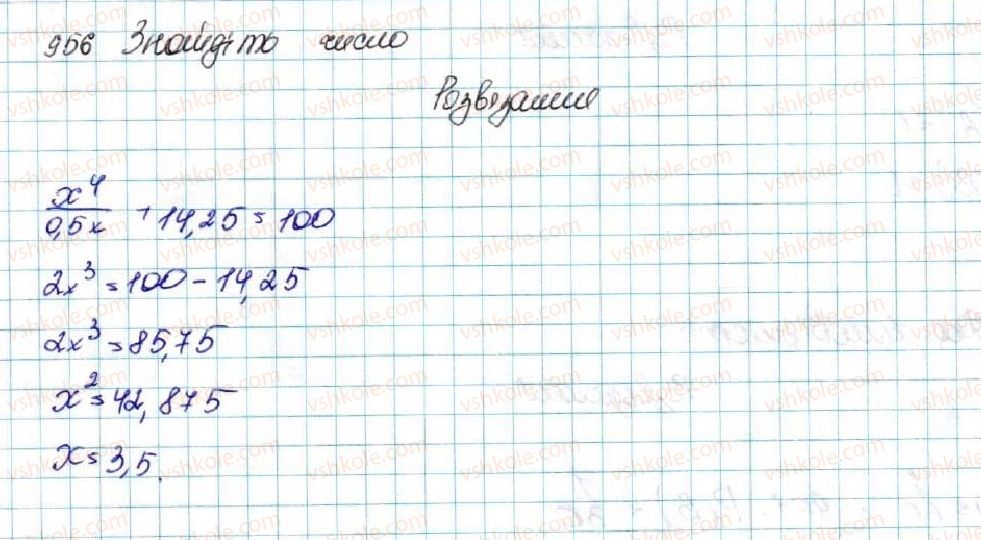 956 Знайдіть число
Розв'язання
x⁴/0,5x + 14,25 = 100
2x³ = 100 - 14,25
2x³ = 85,75
x² = 42,875
x = 3,5.